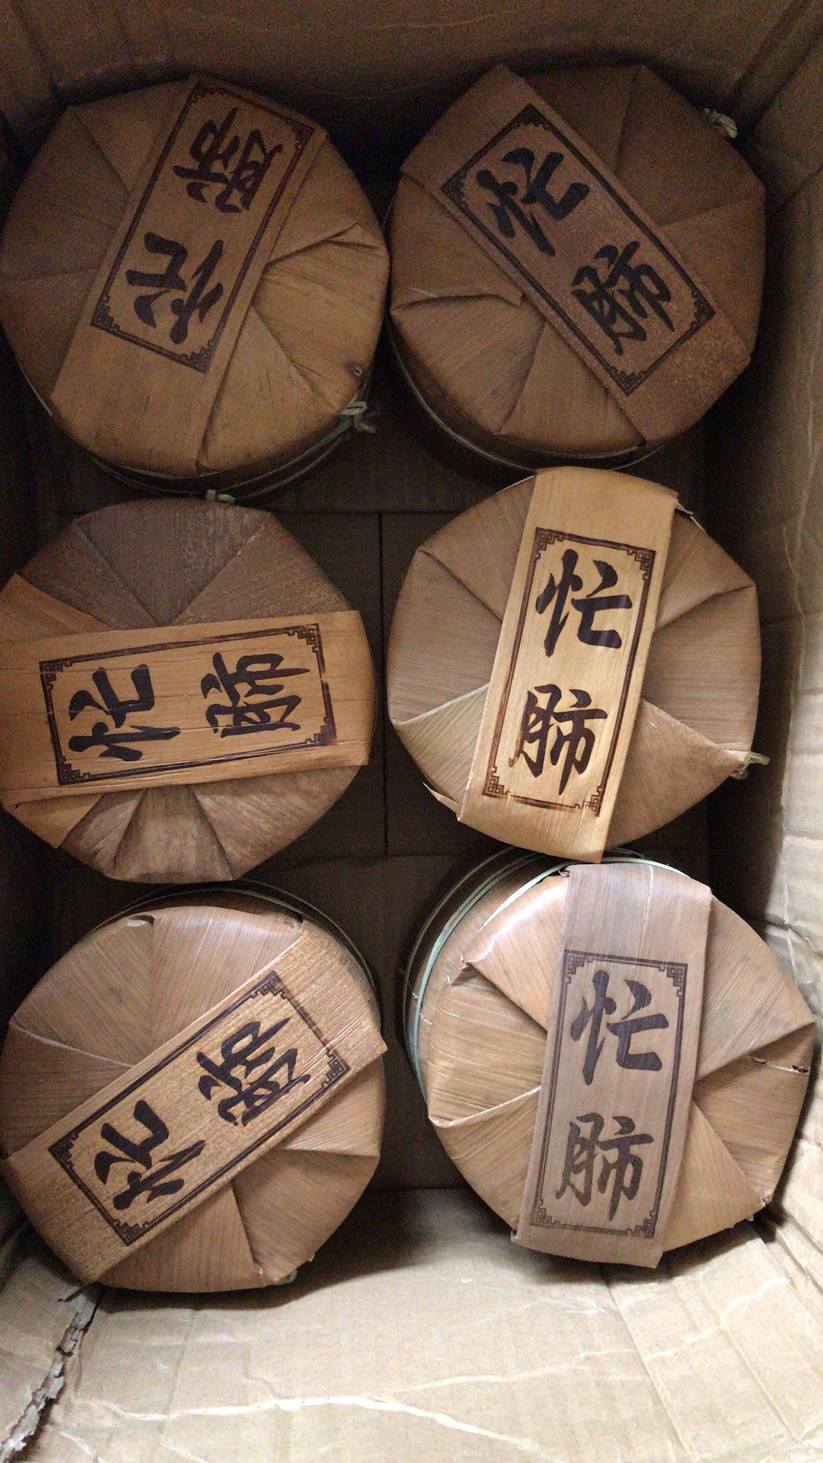 忙肺
忙肺
忙肺
忙肺
忙肺
忙肺